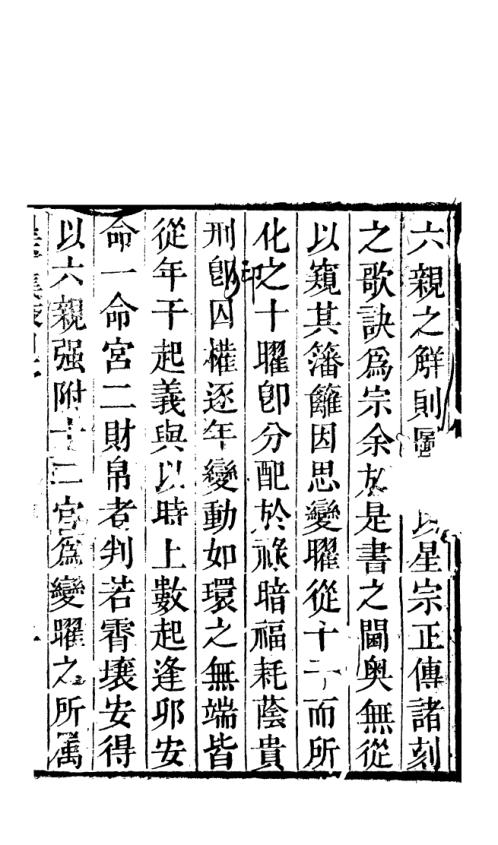 六親之解則以星宗正傳諸刻
之歌訣爲宗余於是書之閫奧無從
以窺其籓籬因思變曜從十干而所
化之十曜卽分配於祿暗福耗蔭貴
刑卽囚權逐年變動如環之無端皆
印
從年干起義與以時上數起逢卯安
命一命宮二財帛者判若霄壤安得
以六親强附十二宮爲變曜之所属